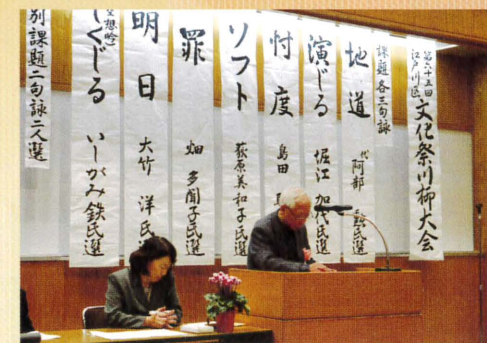 第六十五回
江戸川区
文化祭川柳大会
課題各三句詠
地道
代 阿部
氏選
演じる
堀江 加代氏選
忖度
島田
ソフト
荻原美和子氏選
罪
畑 多聞子氏選
明日
大竹 洋氏
くじる
いしがみ鉄氏選
別課題二句詠二人選